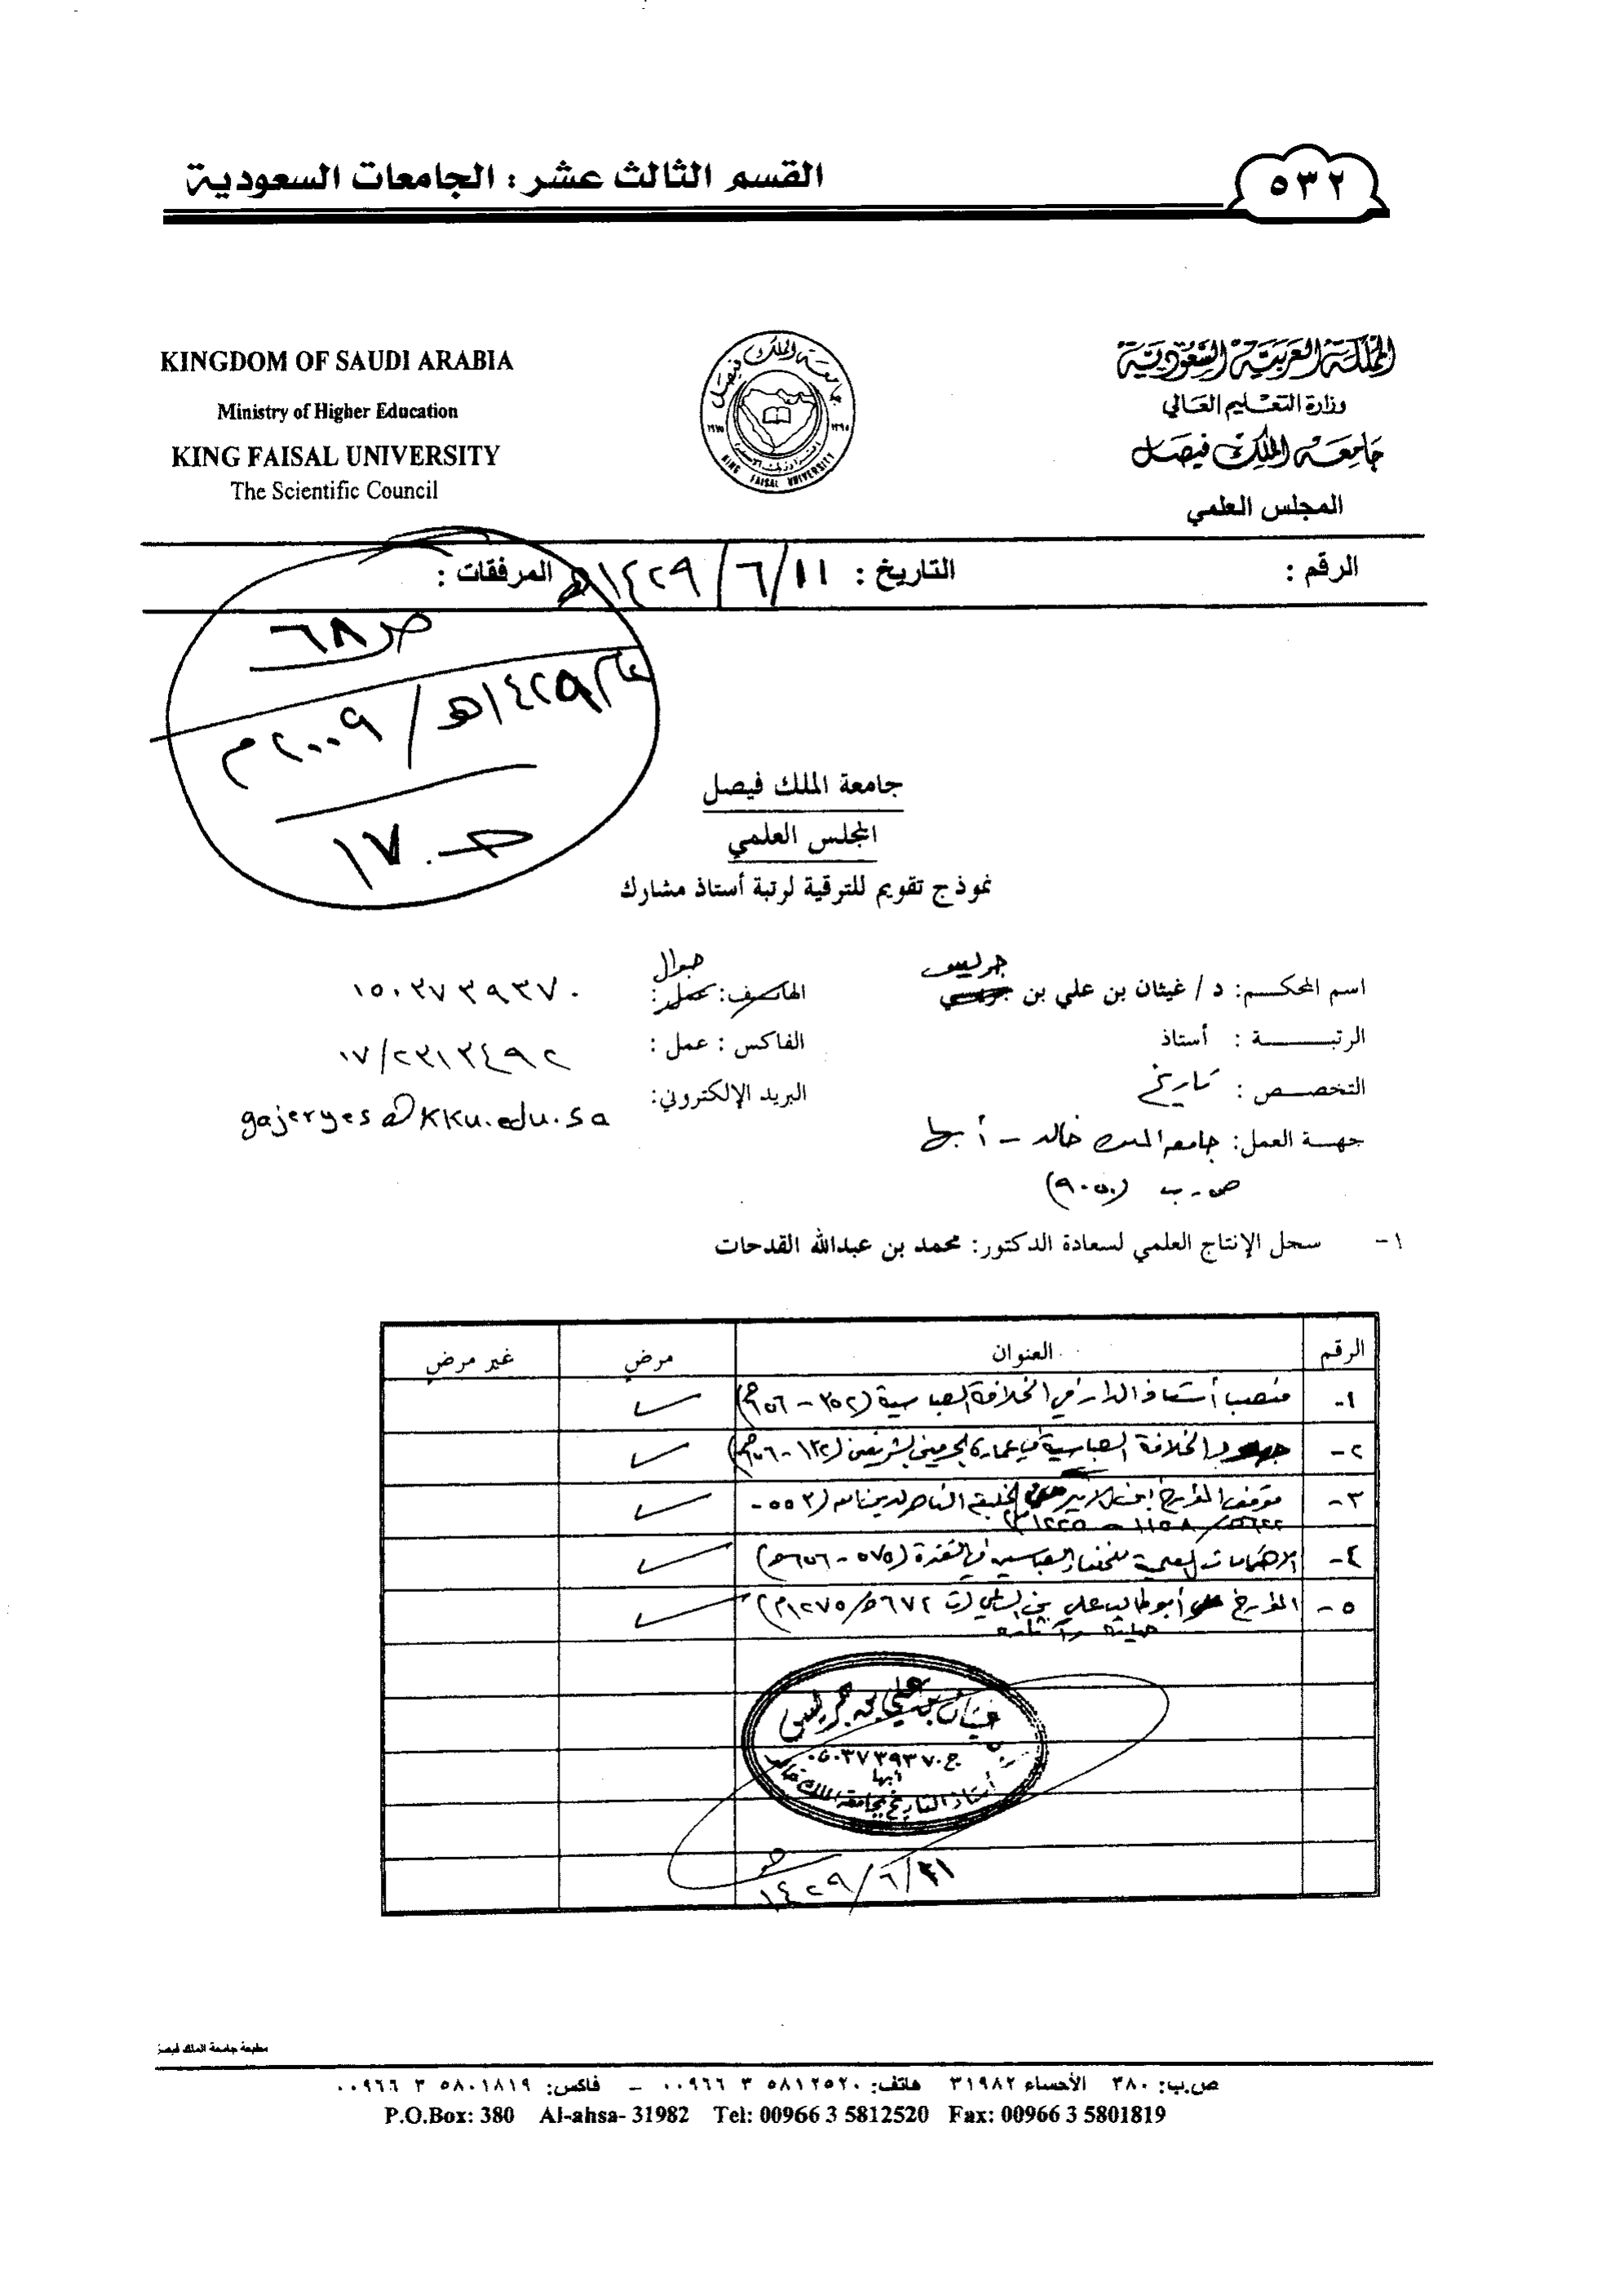 ٥٣٢
القسم الثالث عشر : الجامعات السعودية
المملكة العربية السعودية
وزارة التعليم العالي
جامعة الملك فيصل
المجلس العلمي
جامعة الملك فيصل
١٣٩٥
١٩٧٥
KING FAISAL UNIVERSITY
KINGDOM OF SAUDI ARABIA
Ministry of Higher Education
KING FAISAL UNIVERSITY
The Scientific Council
الرقم :
التاريخ : ١١/٦/١٤٢٩هـ
المرفقات :
ص٦٨
١٤٢٩هـ/٢٠٠٩م
١٧
جامعة الملك فيصل
المجلس العلمي
نموذج تقويم للترقية لرتبة أستاذ مشارك
اسم المحكم: د / غيثان بن علي بن جريس
الهاتف: عمل: جوال ٠٥٠٣٧٣٩٣٧٠
الرتبة : أستاذ
الفاكس : عمل : ١٧/٢٣١٣٤٩٢
التخصص : تاريخ
البريد الإلكتروني: gajeryes@kku.edu.sa
جهة العمل: جامعة الملك خالد - أبها
ص.ب (٩٠٥٠)
١- سجل الإنتاج العلمي لسعادة الدكتور: محمد بن عبدالله القدحات
الرقم العنوان مرض غير مرض
١- منصب أستاذ الدار في الخلافة العباسية (٣٥٢-٦٥٦هـ)
٢- جهود الخلافة العباسية في عمارة الحرمين الشريفين (١٣٢-٦٥٦هـ)
٣- موقف المؤرخ ابن الأثير من الخليفة الناصر لدين الله (٥٥٣-
٦٢٢هـ/١١٥٨-١٢٢٥م)
٤- الاهتمامات العلمية للخلفاء العباسيين في الفترة (٥٧٥-٦٥٦هـ)
٥- المؤرخ أبو طالب علي بن الساعي (ت ٦٧٤هـ/١٢٧٥م)
حياته وآثاره
غيثان بن علي بن جريس
ج ٠٥٠٣٧٣٩٣٧٠
أبها
أستاذ التاريخ بجامعة الملك خالد
١٤٢٩/٦/٢١
مطبعة جامعة الملك فيصل
ص.ب: ٣٨٠ الأحساء ٣١٩٨٢ هاتف: ٥٨١٢٥٢٠ ٣ ٠٠٩٦٦ – فاكس: ٥٨٠١٨١٩ ٣ ٠٠٩٦٦
P.O.Box: 380 Al-ahsa- 31982 Tel: 00966 3 5812520 Fax: 00966 3 5801819